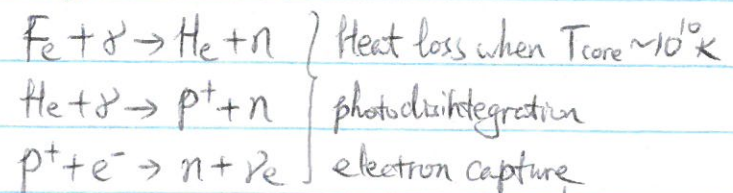 Fe + γ → He + n } Heat loss when Tcore ~10¹⁰K
He + γ → p⁺ + n } photodisintegration
p⁺ + e⁻ → n + νe } electron capture